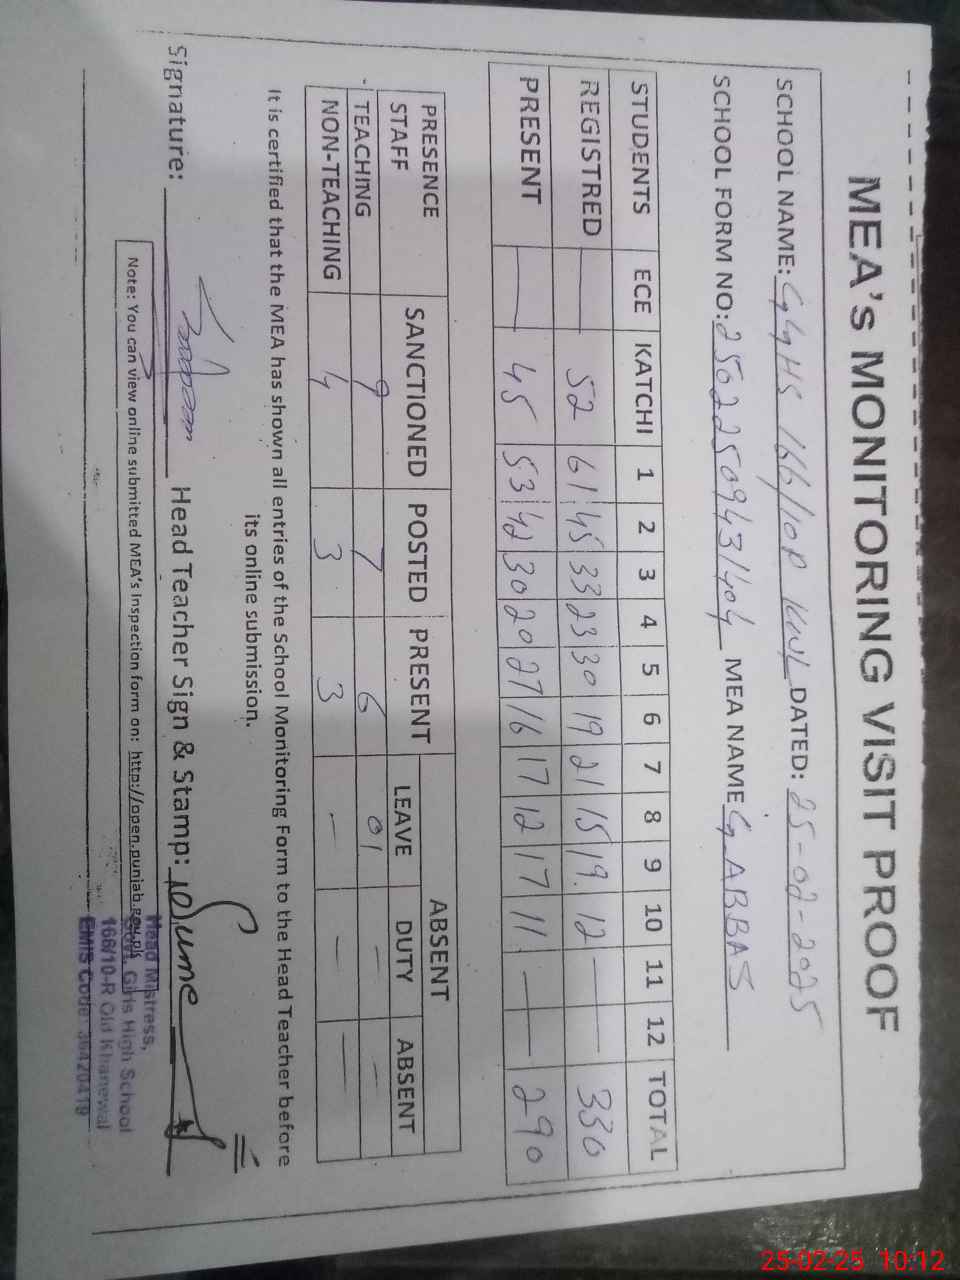 MEA's MONITORING VISIT PROOF
SCHOOL NAME: GGHS 166/10R KWL DATED: 25-02-2025
SCHOOL FORM NO: 25022509431404 MEA NAME G. ABBAS
STUDENTS ECE KATCHI 1 2 3 4 5 6 7 8 9 10 11 12 TOTAL
REGISTRED — 52 61 45 33 23 30 19 21 15 19. 12 — 330
PRESENT — 45 53 42 30 20 27 16 17 12 17 11. — — 290
PRESENCE STAFF SANCTIONED POSTED PRESENT ABSENT
LEAVE DUTY ABSENT
TEACHING 9 7 6 01 – —
NON-TEACHING 4 3 3 – — —
It is certified that the MEA has shown all entries of the School Monitoring Form to the Head Teacher before
its online submission.
Signature: Head Teacher Sign & Stamp:
Note: You can view online submitted MEA's Inspection form on: http://open.punjab.gov.pk
Head Mistress,
Govt. Girls High School
166/10-R Old Khanewal
EMIS Code 36420419
25-02-25 10:12